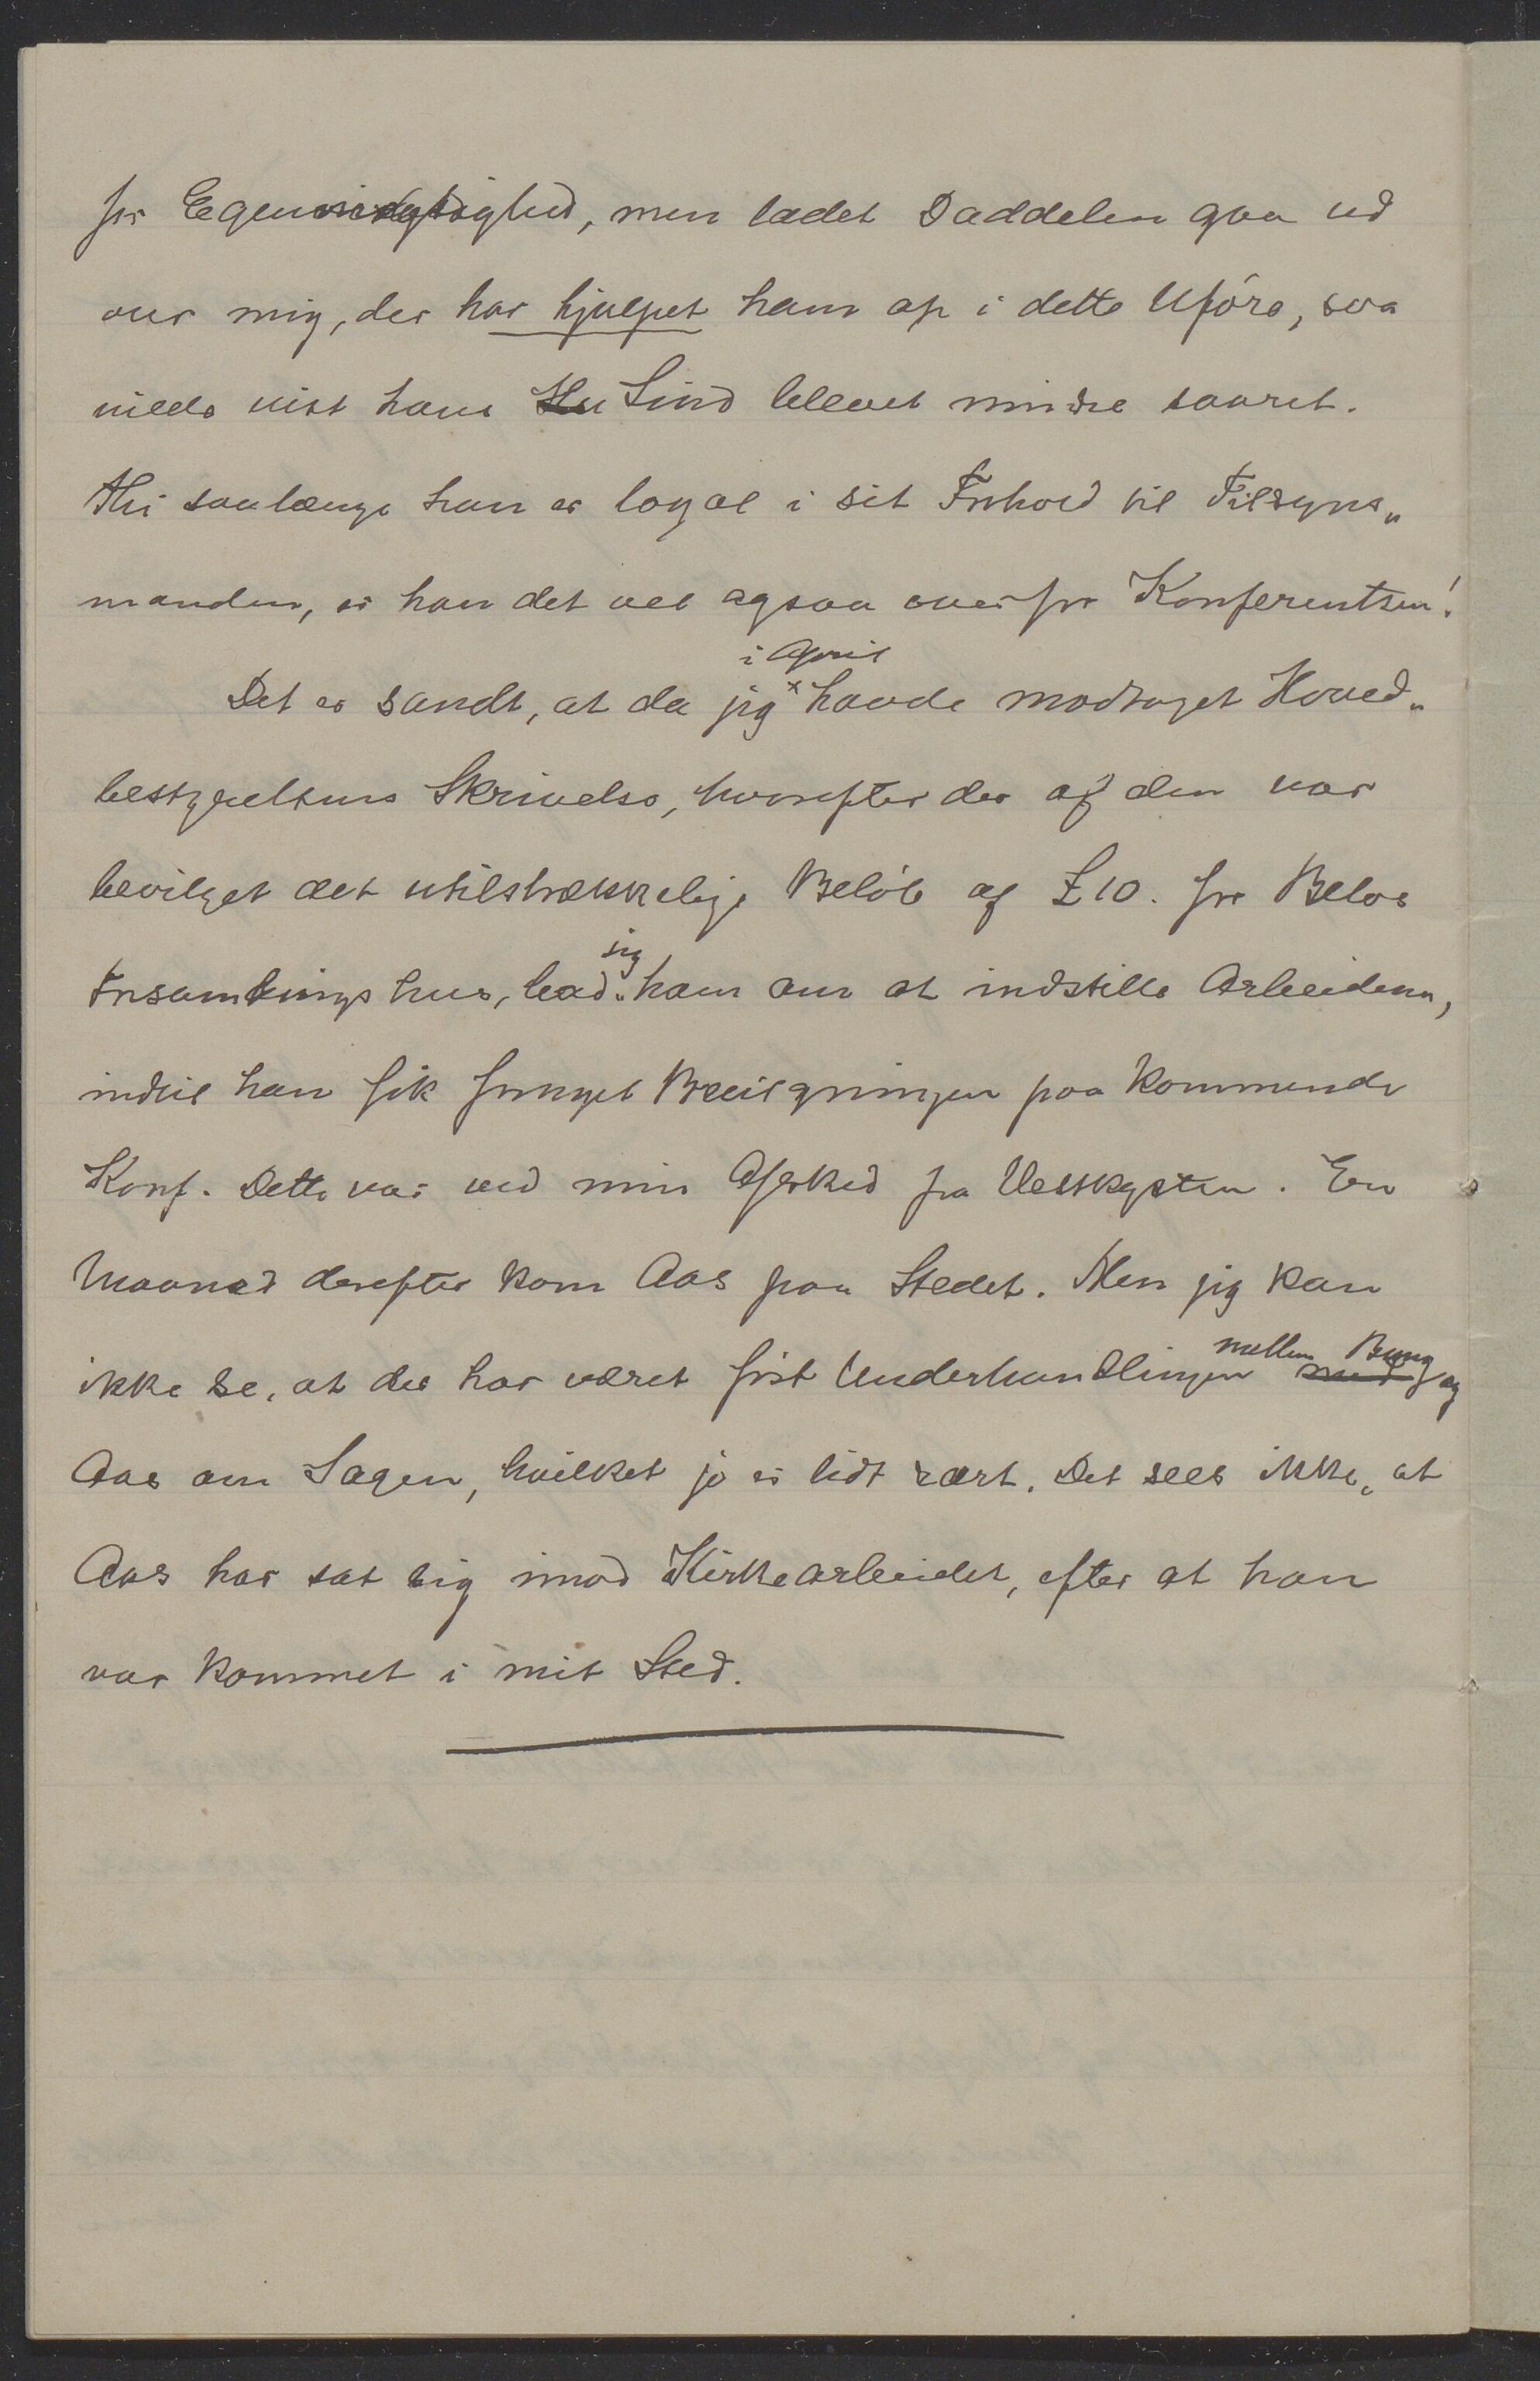 for Egenmægtighed, men ladet Daddelen gaa ud
over mig, der har hjulpet ham op i dette Uføre, saa
vilde vist hans Sind blevet mindre saaret.
Thi saalænge han er loyal i sit Forhold til Tilsyns„
manden, er han det vel ogsaa overfor Konferentsen!
i April
Det er sandt, at da jeg × havde modtaget Hoved„
bestyrelsens Skrivelse, hvorefter der af den var
bevilget det utilstrækkelige Beløb af £10. for Belos
jeg
Forsamlingshus, bad ham om at indstille Arbeidene,
indtil han fik fornyet Bevilgningen paa kommende
Konf. Dette var ved min Afsked fra Vestkysten. En
Maaned derefter kom Aas paa Stedet. Men jeg kan
mellem Bung
ikke se, at der har været ført Underhandlinger med og
Aas om Sagen, hvilket jo er lidt rart. Det sees ikke, at
Aas har sat sig imod Kirkearbeidet, efter at han
var kommet i mit Sted.